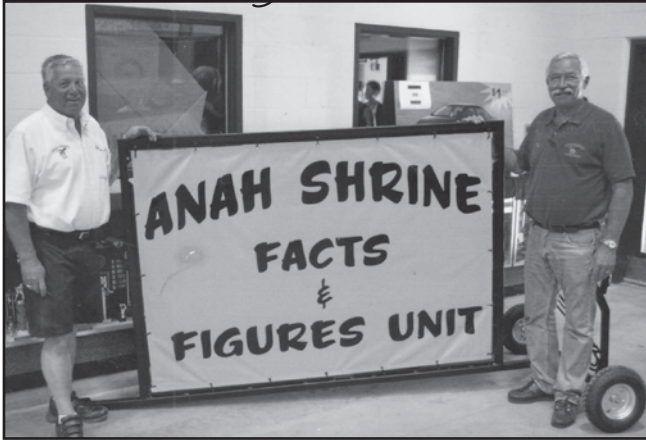 ANAH SHRINE
FACTS
&
FIGURES UNIT
$1